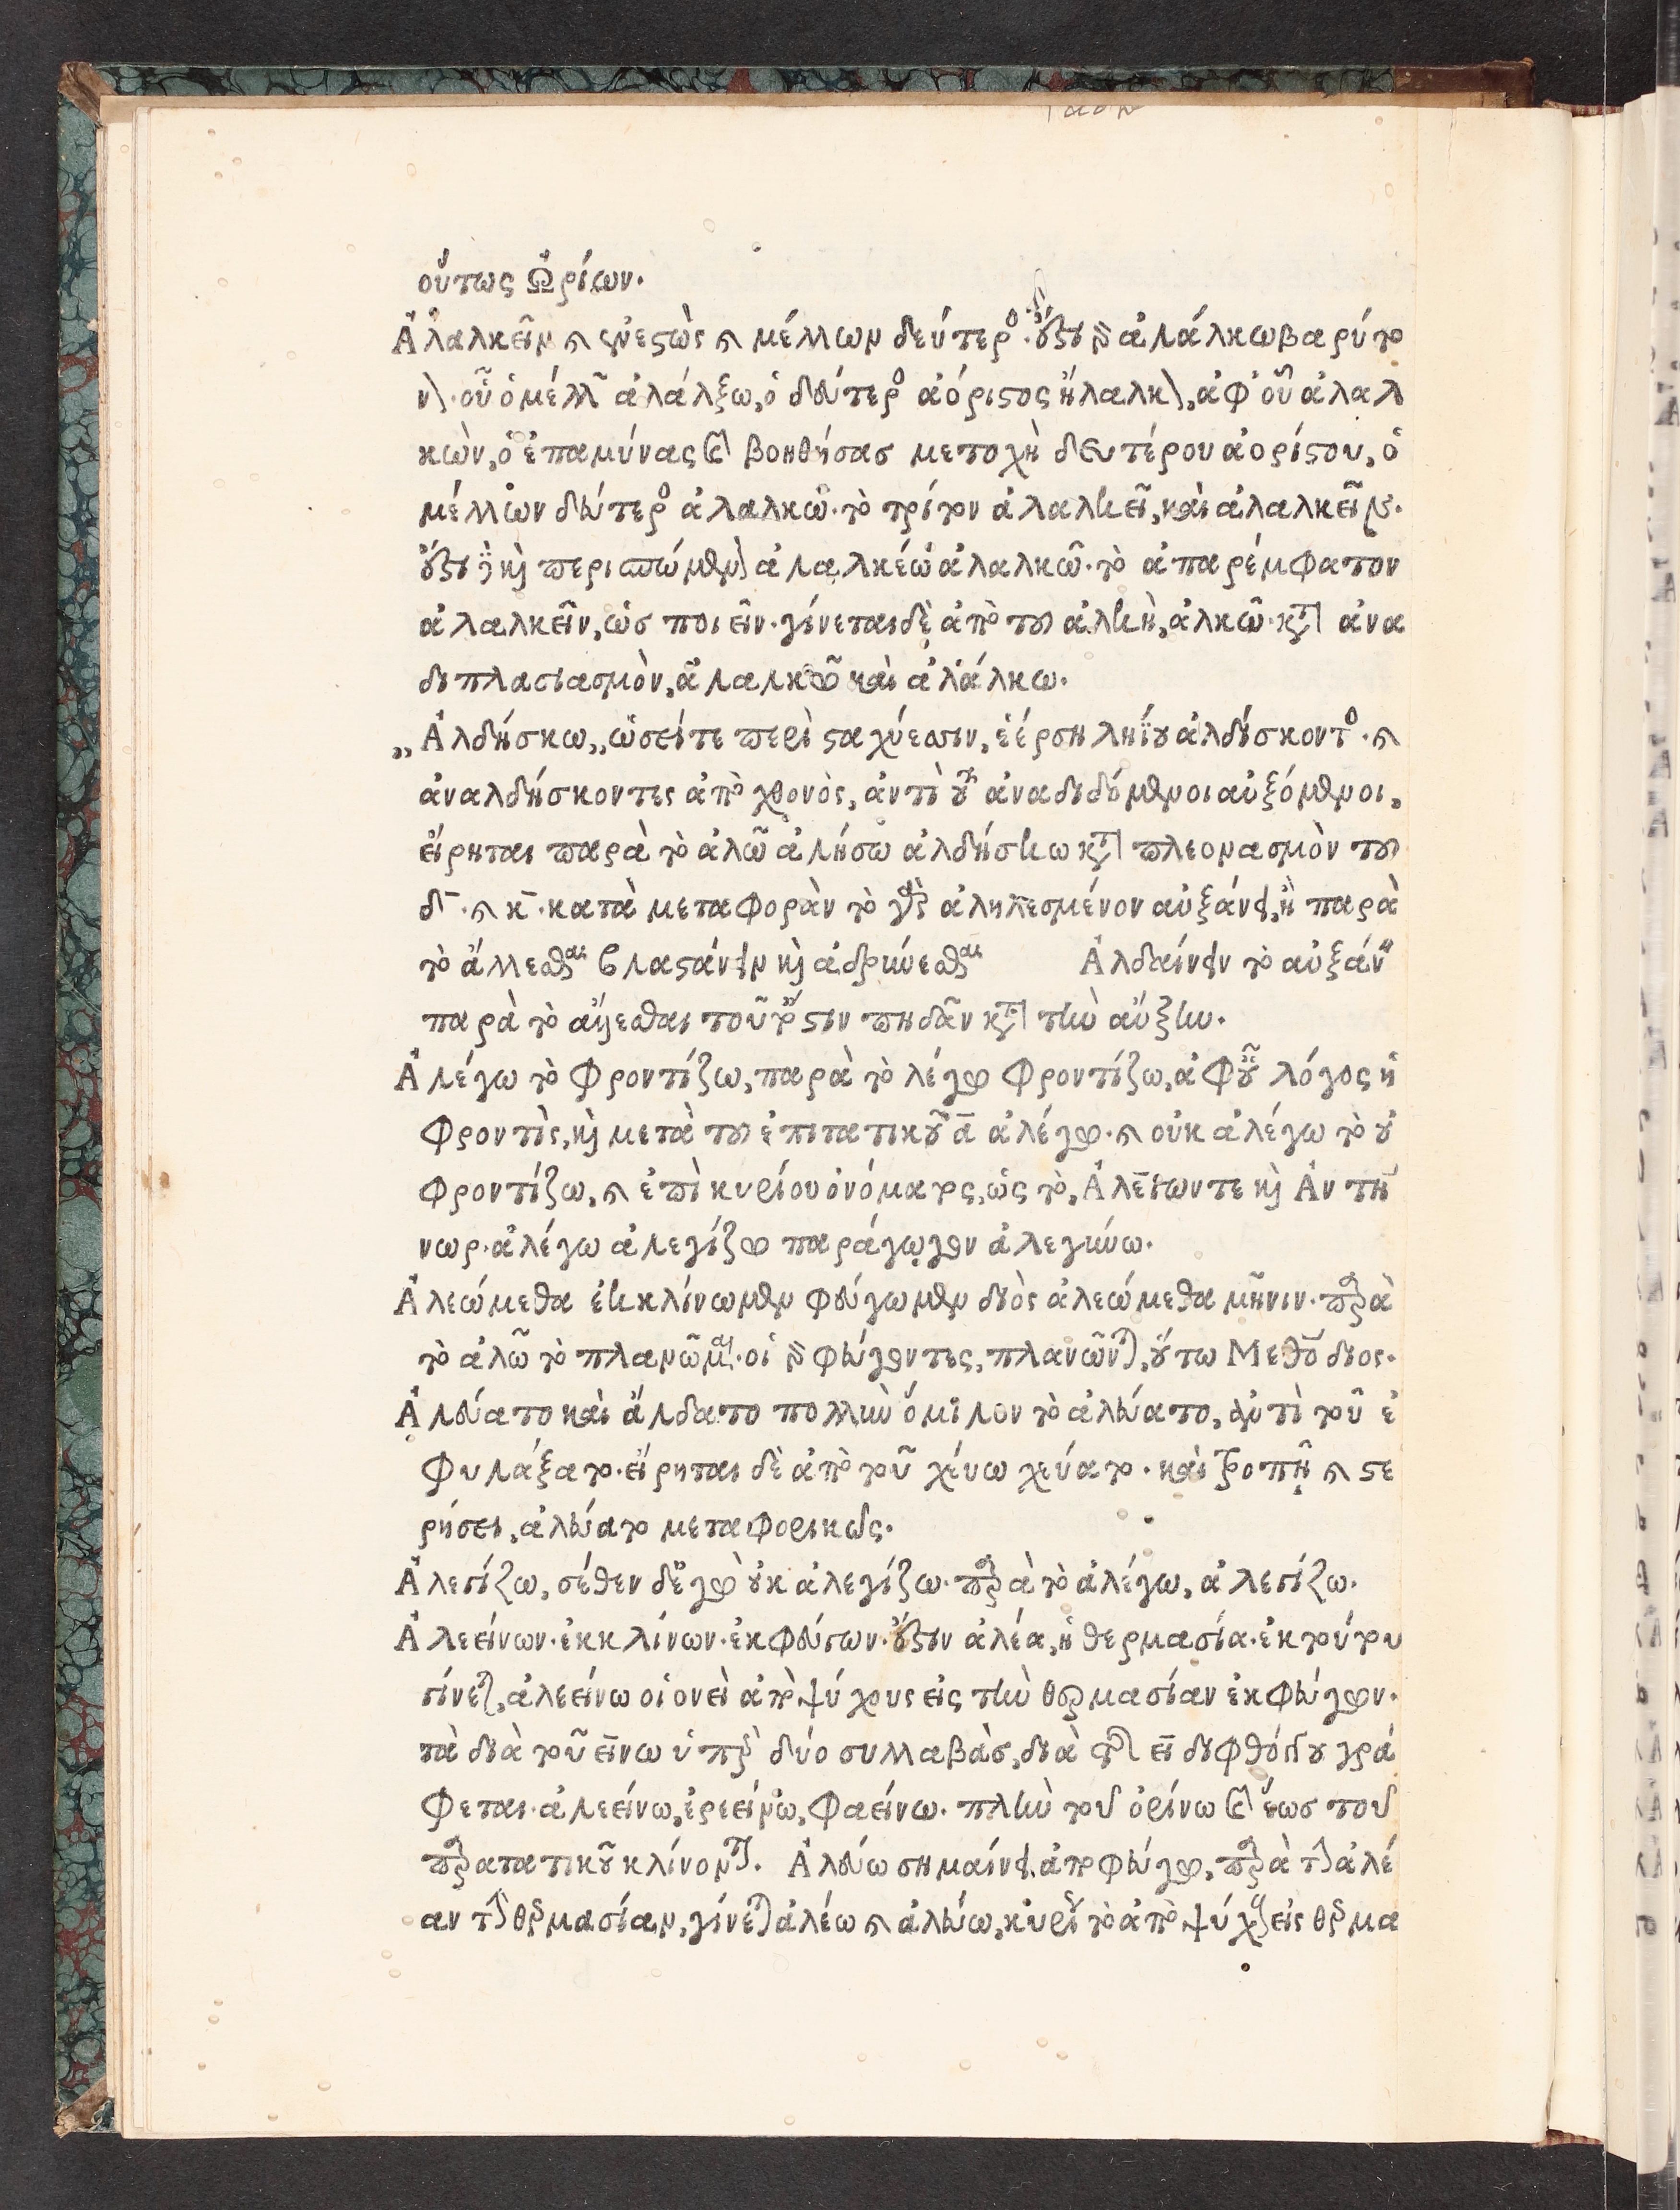 οὕτως Ὠρίων.
Ἀλαλκεῖν καὶ ἐνεστὼς καὶ μέλλων δεύτερος. ἔστι γὰρ ἀλάλκω βαρύτο
νον. οὗ ὁ μέλλων ἀλάλξω, ὁ δεύτερος ἀόριστος ἤλαλκον, ἀφ' οὗ ἀλαλ
κὼν, ὁ ἐπαμύνας καὶ βοηθήσας μετοχὴ δευτέρου ἀορίστου, ὁ
μέλλων δεύτερος ἀλαλκῶ. τὸ τρίτον ἀλαλκεῖ, καὶ ἀλαλκεῖν.
ἔστι καὶ περισπώμενον ἀλαλκέω ἀλαλκῶ. τὸ ἀπαρέμφατον
ἀλαλκεῖν, ὡς ποιεῖν. γίνεται δὲ ἀπὸ τοῦ ἀλκὴ, ἀλκῶ. κατὰ ἀνα
διπλασιασμὸν, ἀλαλκῶ καὶ ἀλάλκω.
„ Ἀλδήσκω,, ὡσείτε περὶ σταχύεσσιν, ἐέρση ληΐου ἀλδήσκοντος. καὶ
ἀναλδήσκοντες ἀπὸ χθονὸς, ἀντὶ τοῦ ἀναδιδόμενοι αὐξόμενοι,
εἴρηται παρὰ τὸ ἀλῶ ἀλήσω ἀλδήσκω κατὰ πλεονασμὸν τοῦ
δ. καὶ κ. κατὰ μεταφορὰν τὸ γὰρ ἀληλεσμένον αὐξάνει, ἢ παρὰ
τὸ ἄλλεσθαι βλαστάνειν καὶ ἁδρύνεσθαι Ἀλδαίνειν τὸ αὐξάνειν
παρὰ τὸ ἅλλεσθαι τοῦτ' ἔστιν πηδᾶν κατὰ τὴν αὔξην.
Ἀλέγω τὸ φροντίζω, παρὰ τὸ λέγω φροντίζω, ἀφ' οὗ λόγος ἡ
φροντὶς, καὶ μετὰ τοῦ ἐπιτατικοῦ ᾱ ἀλέγω. καὶ οὐκ ἀλέγω τὸ οὐ
φροντίζω, καὶ ἐπὶ κυρίου ὀνόματος, ὡς τὸ, Ἀλέγων τε καὶ Ἀντή
νωρ. ἀλέγω ἀλεγίζω παράγωγον ἀλεγύνω.
Ἀλεώμεθα ἐκκλίνωμεν φεύγωμεν διὸς ἀλεώμεθα μῆνιν. παρὰ
τὸ ἀλῶ τὸ πλανῶμαι. οἱ γὰρ φεύγοντες, πλανῶνται, οὕτω Μεθόδιος.
Ἀλεύατο καὶ ἄλδατο πολλὺν ὅμιλον τὸ ἀλεύατο, ἀντὶ τοῦ ἐ
φυλάξατο. εἴρηται δὲ ἀπὸ τοῦ χεύω χεύατο. καὶ τροπῇ καὶ στε
ρήσει, ἀλεύατο μεταφορικῶς.
Ἀλεγίζω, σέθεν δ' ἐγὼ οὐκ ἀλεγίζω. παρὰ τὸ ἀλέγω, ἀλεγίζω.
Ἀλεείνων. ἐκκλίνων. ἐκφεύγων. ἔστιν ἀλέα, ἡ θερμασία. ἐκ τούτου
γίνεται, ἀλεείνω οἱονεὶ ἀπὸ ψύχους εἰς τὴν θερμασίαν ἐκφεύγων.
τὰ διὰ τοῦ εινω ὑπὲρ δύο συλλαβὰς, διὰ τῆς ει διφθόγγου γρά
φεται. ἀλεείνω, ἐρεείνω, φαείνω. πλὴν τοῦ ὀρίνω καὶ ἕως τοῦ
παρατατικοῦ κλίνονται. Ἀλεύω σημαίνει ἀποφεύγω, παρὰ τὴν ἀλέ
αν τὴν θερμασίαν, γίνεται ἀλέω καὶ ἀλεύω, κυρίως τὸ ἀπὸ ψύχους εἰς θερμα